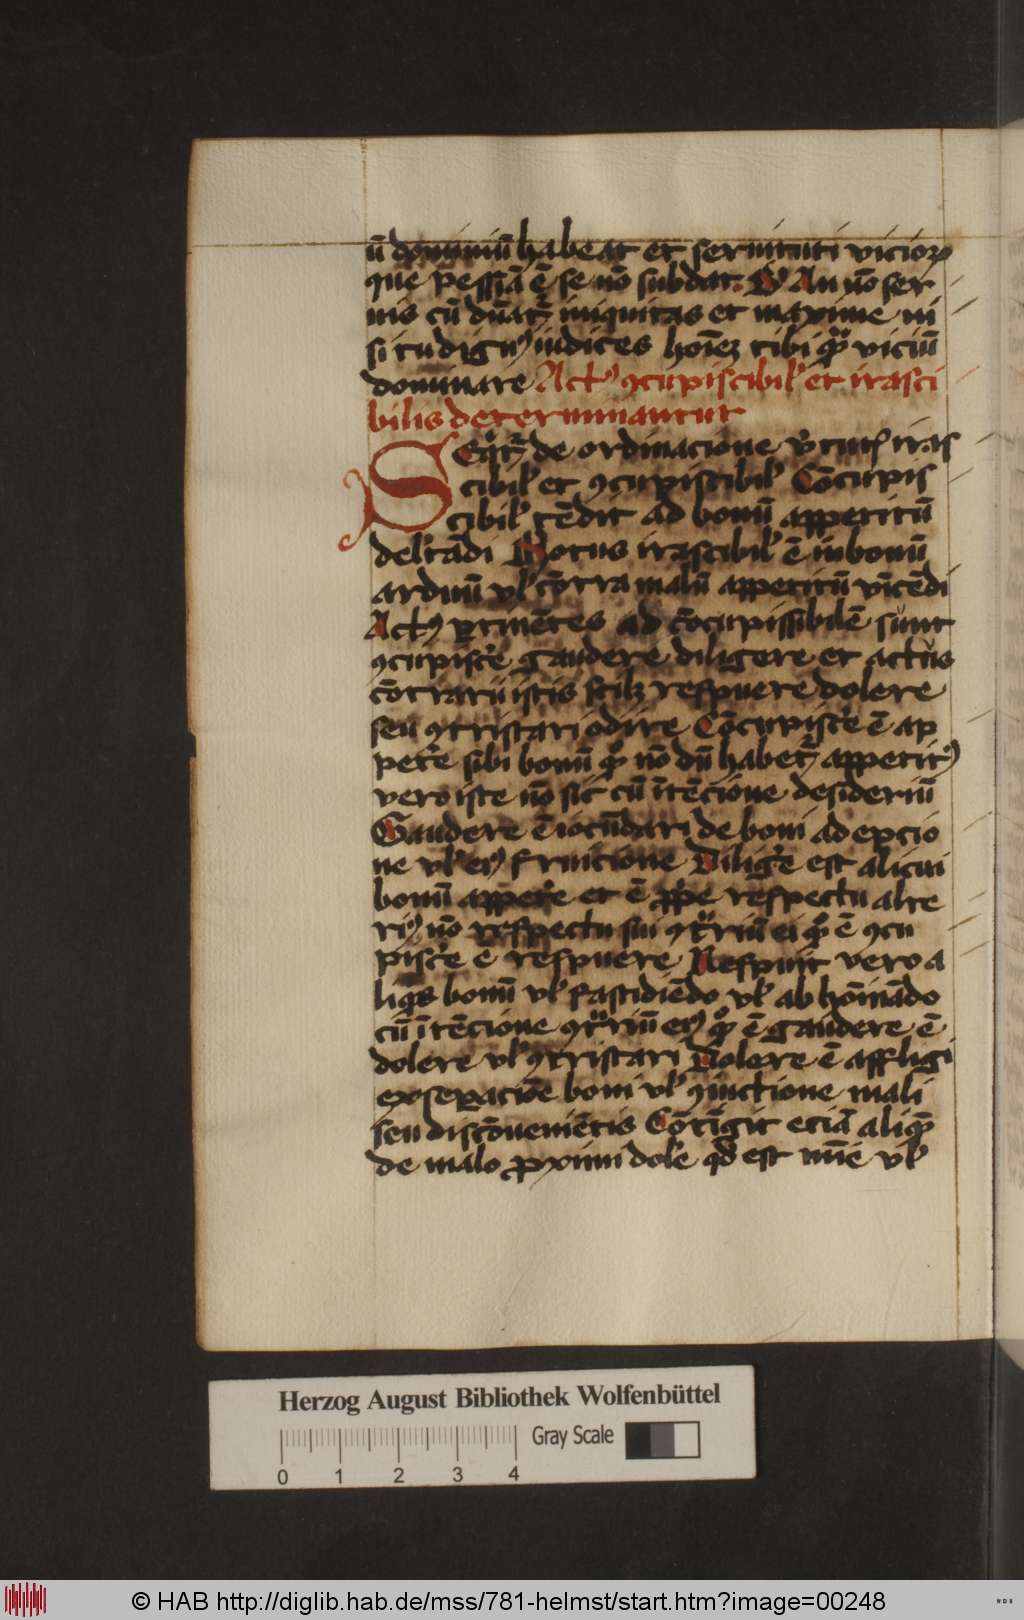 ū dominiū habeat et seruituti vicioꝝ
que pessīa ē se nō subdat. D An nō ser
uis cū dūat᷑ iniquitas et maxime ni
si tu dignꝰ iudices hoīeꝫ tibi qͣꝫ viciū
dominare Actꝰ ꝯcupiscibilꝭ et irasci
bilis determinantur
Seqͥt᷑ de ordinacione v̓tutꝭ iras
cibilꝭ et ꝯcupiscibilꝭ Cōcupis
cibilꝭ tēdit ad bonū appetitū
delc̄tādi Motus irascibilꝭ ē in bonū
arduū vl̓ cōtra malū appetitū vīcēdi
Actꝰ ꝑtinētes ad cōcupissibilē sunt
ꝯcupisc̄e gaudere diligere et actus
cōtrarii istis scilꝫ respuere dolere
seu ꝯtristari odire Cōcupisc̄e ē ap
pet̄e sibi bonū qͦꝫ nō dū habet᷑ appetitꝰ
vero iste nō sit cū ītēcione desideriū
Gaudere ē iocūdari de boni adepcio
ne vl̓ eiꝰ fruicione Dilig̓e est alicui
bonū appet̓e et ē ꝓp̓e respectu alte
riꝰ nō respectu sui ꝯtͣriū ei qͦꝫ ē ꝯcu
pisc̓e ē respuere Respuit vero a
liqͥs bonū vl̓ fastidiēdo vl̓ abhōīnādo
cū ītēcione ꝯtͣriū eiꝰ qͦꝫ ē gaudere ē
dolere vl̓ ꝯtristari Dolere ē affligi
ex seꝑacōe boni vl̓ ꝯiuctione mali
seu discōuenīētis Cōtīgit eciā aliqͣꝫ
de malo ꝓximi dol̓e qd̓ est mīe vl̓
Herzog August Bibliothek Wolfenbüttel
Gray Scale
0 1 2 3 4
© HAB http://diglib.hab.de/mss/781-helmst/start.htm?image=00248